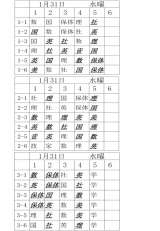 1月31日 水曜
1 2 3 4 5 6
1-1 数 国 保体 理 社
1-2 国 数 保体 社 英
1-3 国 英 社 数 理
1-4 理 社 英 音 国
1-5 英 国 理 数 保体
1-6 美 数 社 国 保体
1月31日 水曜
1 2 3 4 5 6
2-1 社 理 国 保体 理
2-2 理 社 英 保体 国
2-3 国 数 理 美 英
2-4 英 数 社 国 理
2-5 音 英 理 国 数
2-6 技 定 数 理 英
1月31日 水曜
1 2 3 4 5 6
3-1 数 保体 社 美 学
3-2 英 保体 国 社 学
3-3 保体 国 理 数 学
3-4 保体 英 数 美 学
3-5 理 社 数 英 学
3-6 国 社 英 理 学